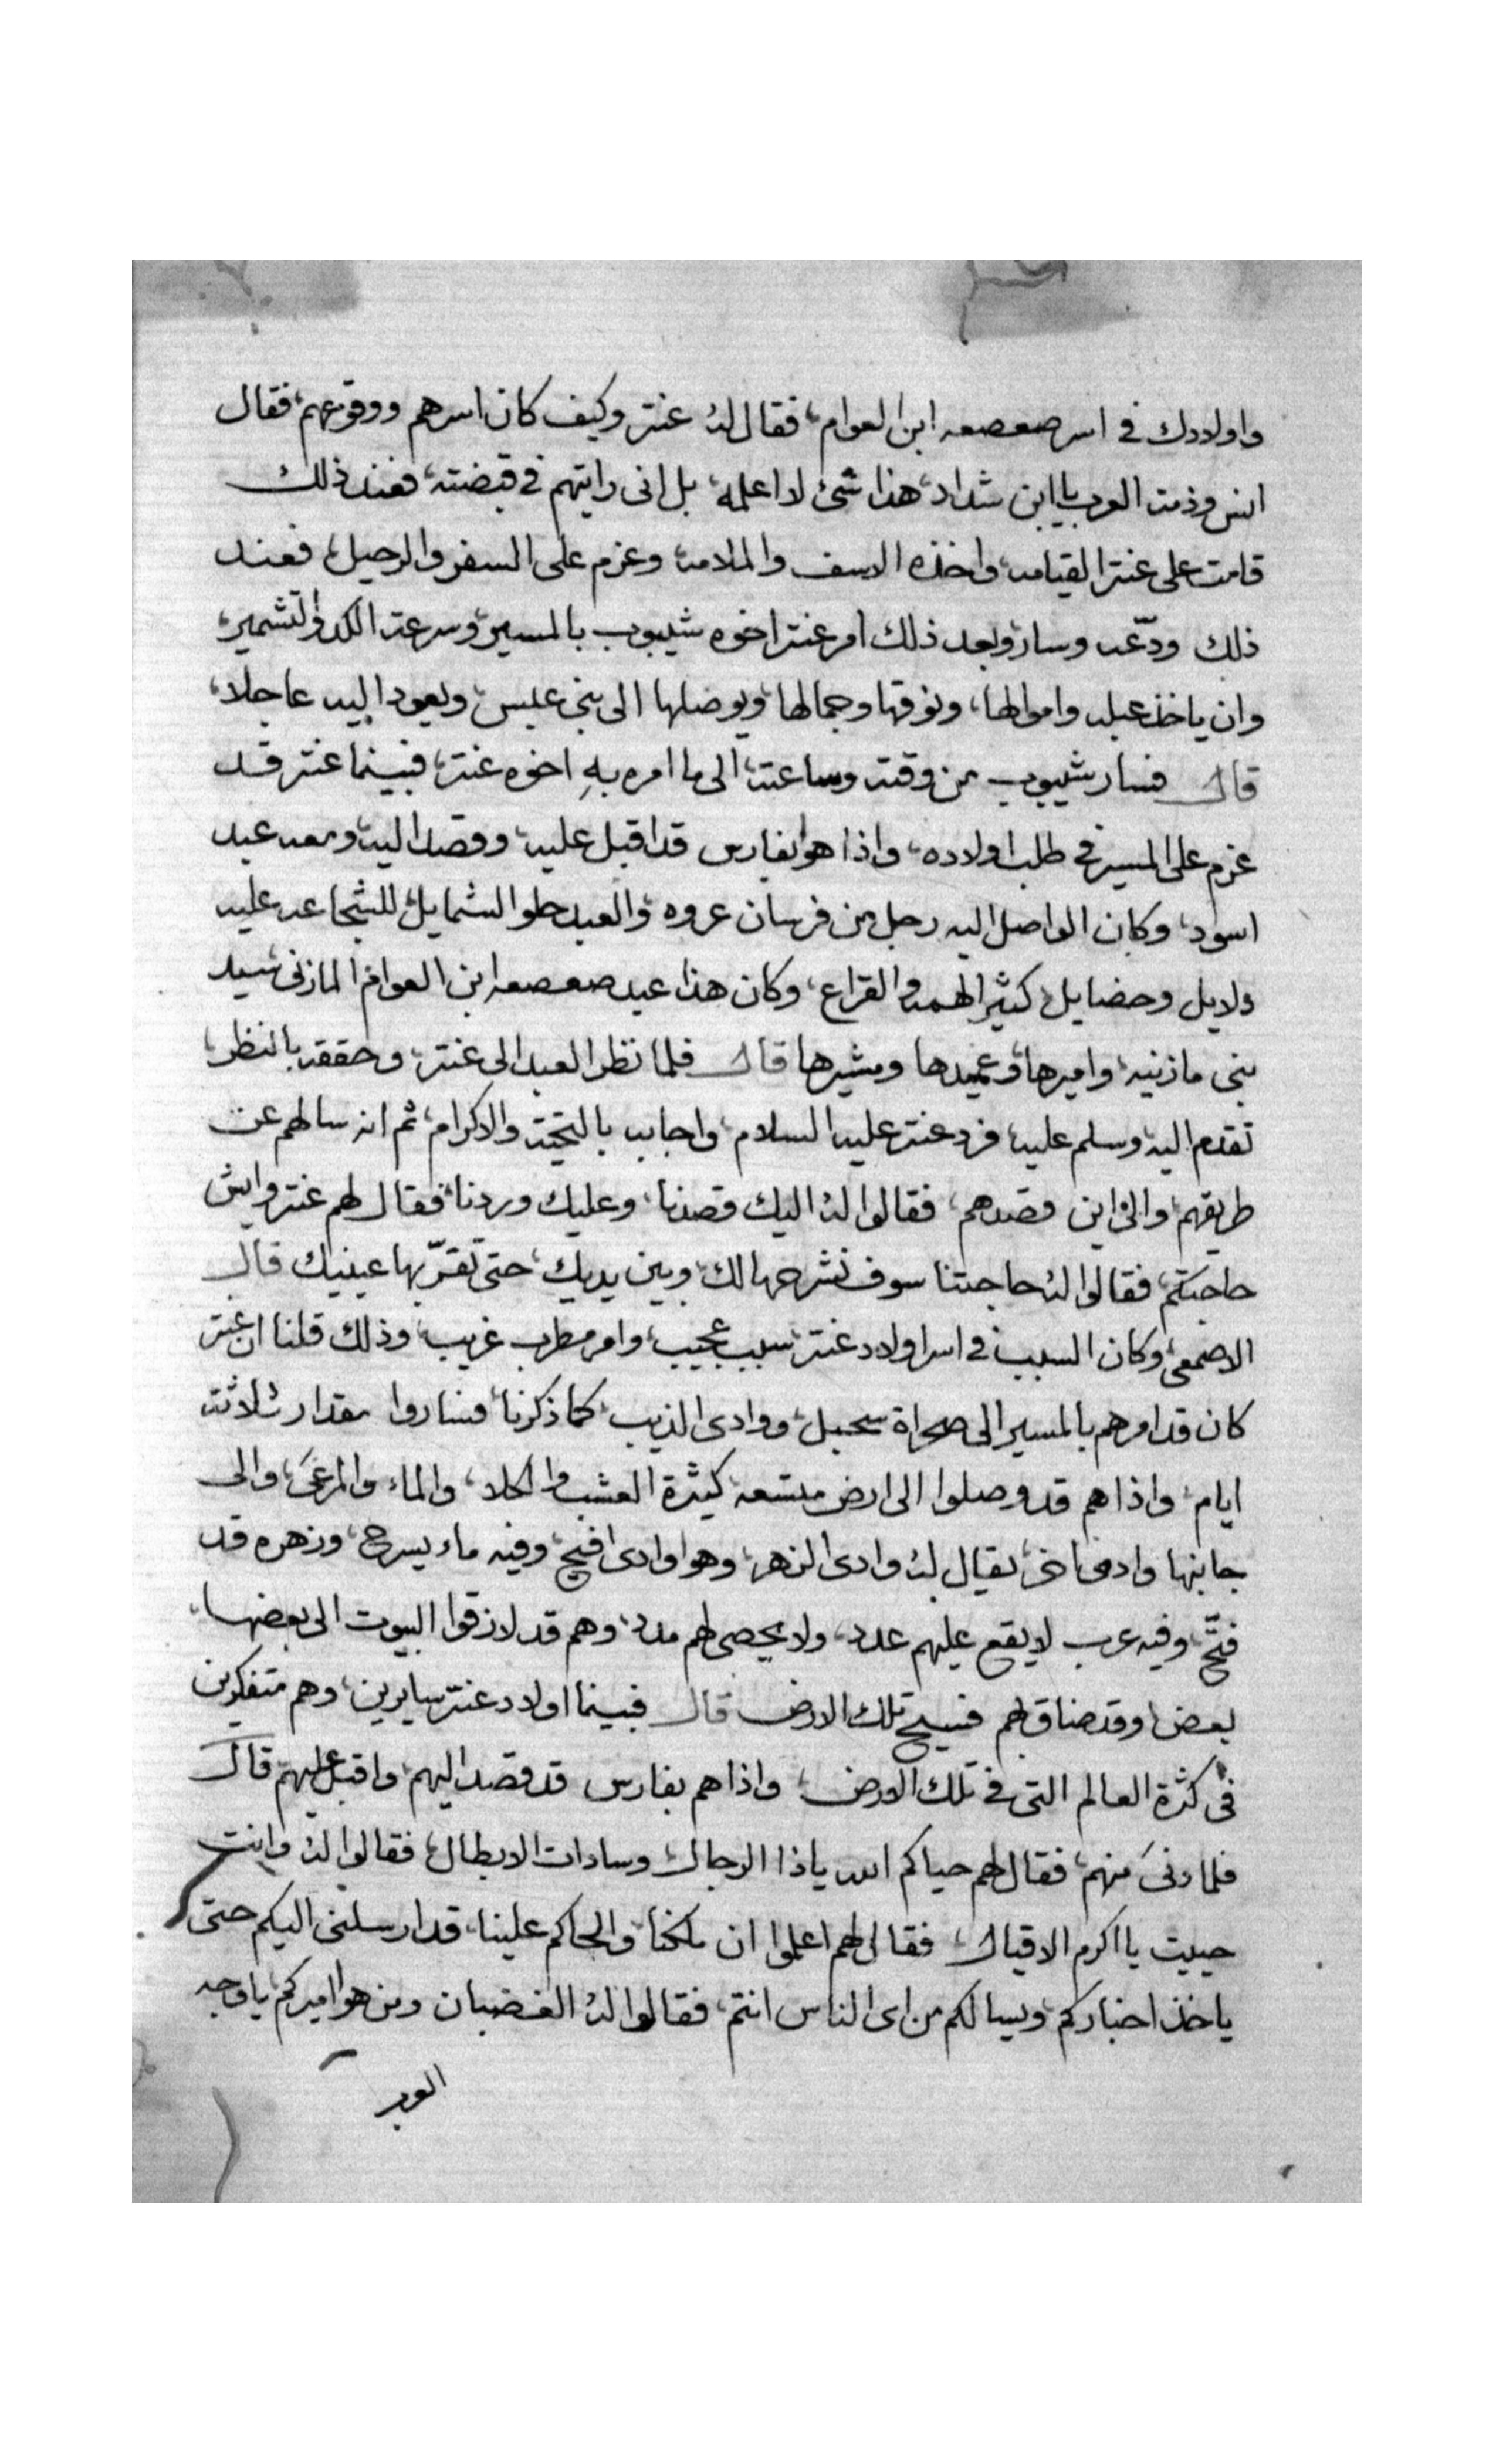 واولادك في اسر صعصعه ابن العوام، فقال له عنتر وكيف كان اسرهم ووقوعهم، فقال
انس وذمت العرب يا ابن شداد، هذا شئ لا اعلمه، بل انى رايتهم في قبضته، فعند ذلك
قامت على عنتر القيامه، واخذه الاسف والملامه، وعزم على السفر والرحيل، فعند
ذلك ودّعه وسار، وبعد ذلك امر عنتر اخوه شيبوب بالمسير، وسرعة الكد والتشمير،
وان ياخذ عبله واموالها، ونوقها وجمالها، ويوصلها الى بنى عبس، ويعود اليه عاجلا،
قال فسار شيبوب من وقته وساعته، الى ما امره بهِ اخوه عنتر، فبينما عنتر قد
عزم على المسير في طلب اولاده، واذا هو بفارس قد اقبل عليه، وقصد اليه، ومعه عبد
اسود، وكان الواصل اليه رجل من فرسان عروه، والعبد حلو الشمايل، للشجاعه عليه
دلايل وخصايل، كثير الهمه والقراع، وكان هذا عبد صعصعه ابن العوام المازنى سيد
بنى مازنيه، واميرها، وعميدها ومشيرها قال فلما نظر العبد الى عنتر، وحققه بالنظر،
تقدم اليه وسلم عليه، فرد عنتر عليه السلام، واجابه بالتحية والاكرام، ثم انه سالهم عن
طريقهم، والى اين قصدهم، فقالوا له اليك قصدنا، وعليك وردنا، فقال لهم عنتر وايش
حاجتكم، فقالوا له حاجتنا سوف نشرحها لك، وبين يديك، حتى تقرّ بها عينيك قال
الاصمعى، وكان السبب في اسر اولاد عنتر، سبب عجيب، وامر مطرب غريب، وذلك قلنا ان عنتر
كان قد امرهم بالمسير الى صحراة سحبل، ووادى الذيب، كما ذكرنا، فساروا مقدار ثلاثة
ايام، واذا هم قد وصلوا الى ارض متسعه، كثيرة العشب والكلا، والماء والمرعى، والى
جانبها وادى اخر، يقال له وادى الزهر، وهو وادى افيح، وفيه ماء يسرح، وزهره قد
فتّح، وفيه عرب لا يقع عليهم عدد، ولا يحصى لهم مدد، وهم قد لازقوا البيوت الى بعضها
بعض، وقد ضاق لهم فسيح تلك الارض قال فبينما اولاد عنتر سايرين، وهم متفكرين
في كثرة العالم التى في تلك الارض، واذا هم بفارس قد قصد اليهم، واقبل عليهم قال
فلما دنى منهم، فقال لهم حياكم الله يا ذا الرجال، وسادات الابطال، فقالوا له وانت
حييت يا اكرم الاقيال، فقال لهم اعلموا ان ملكنا، والحاكم علينا، قد ارسلنى اليكم حتى
ياخذ اخباركم، ويسالكم من اى الناس انتم، فقالوا له الغضبان ومن هو اميركم يا وجه
العرب